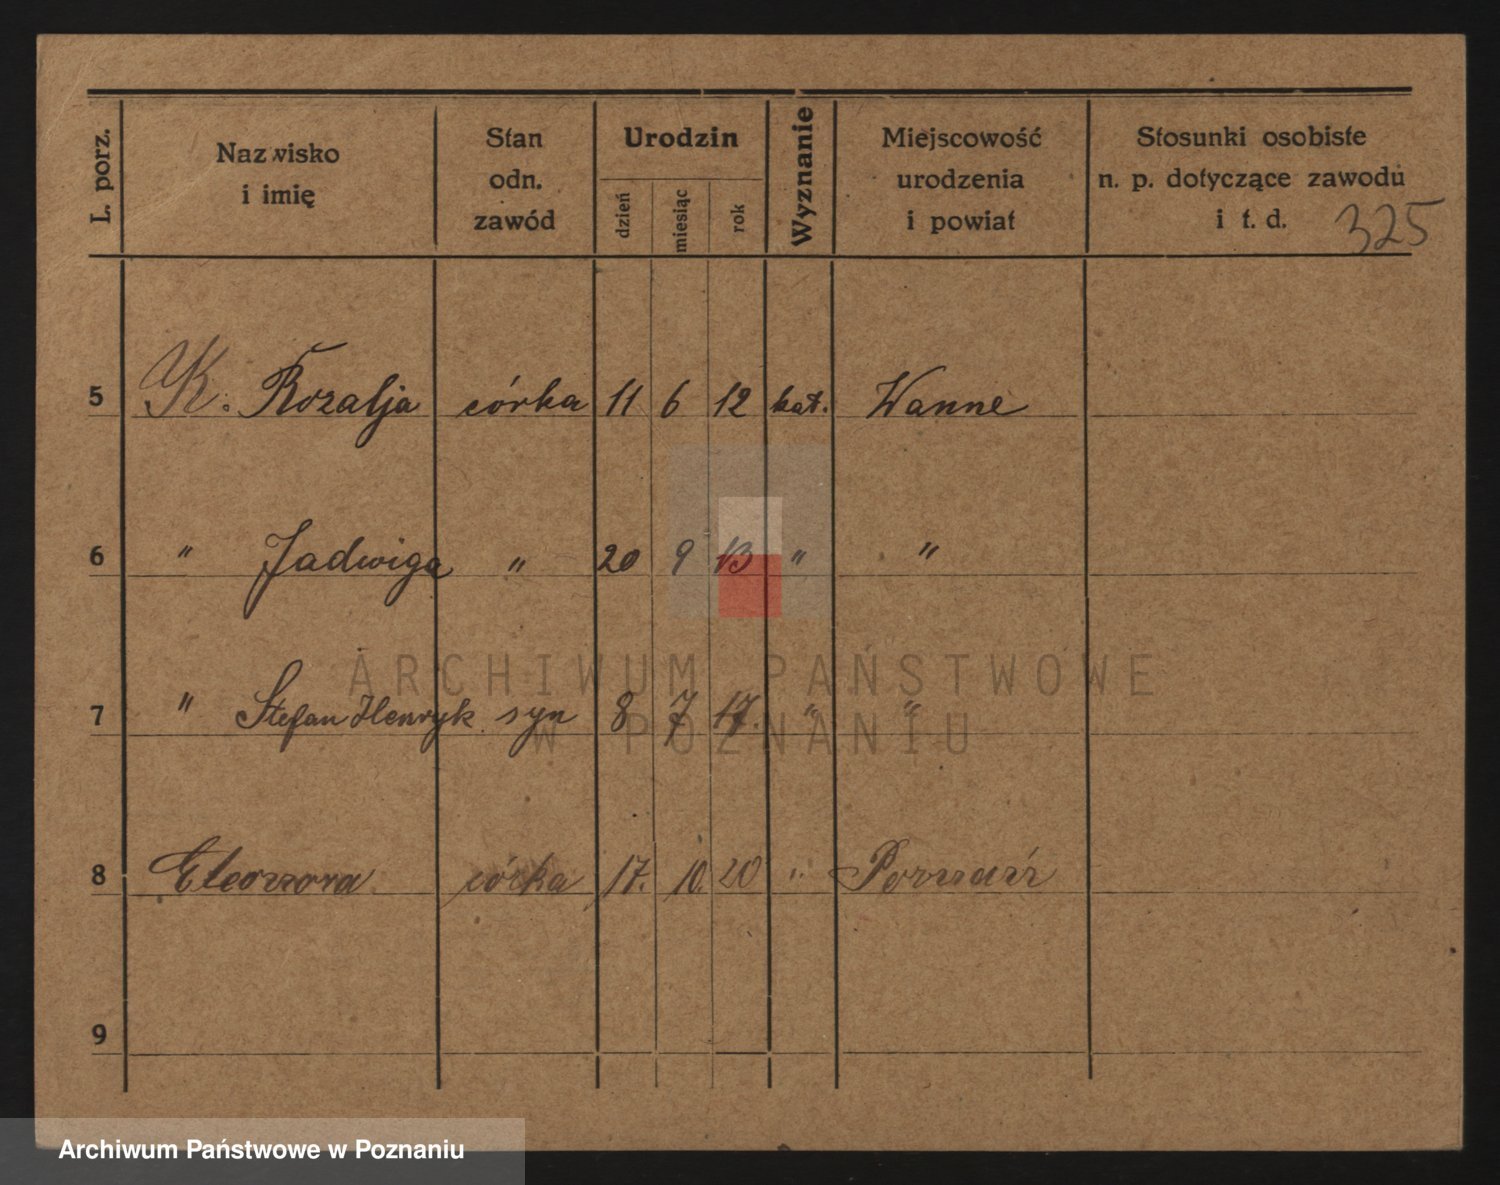 L. porz.
Nazwisko
i imię
Stan
odn.
zawód
Urodzin
dzień
miesiąc
rok
Wyznanie
Miejscowość
urodzenia
i powiat
Stosunki osobiste
n. p. dotyczące zawodu
i t. d.
325
5 K. Rozalja córka 11 6 12 kat. Wanne
6 " Jadwiga " 20 9 13 " "
7 " Stefan Henryk syn 8 7 17. " "
8 Eleonora córka 17. 10 20 " Poznań
9
ARCHIWUM PAŃSTWOWE
W POZNANIU
Archiwum Państwowe w Poznaniu